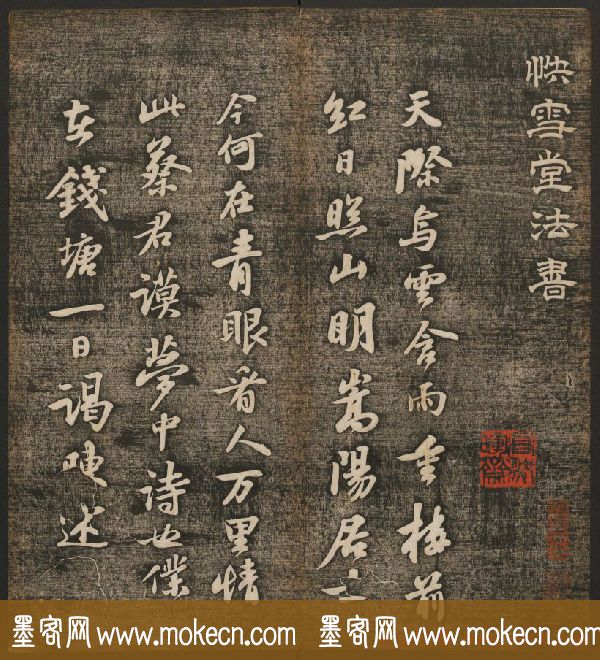 快雪堂法書
天際烏雲含雨重樓前
紅日照山明嵩陽居
今何在青眼看人万里情
此蔡君謨夢中詩也僕
在錢塘一日謁陳述
墨客网 www.mokecn.com 墨客网 www.mokecn.com